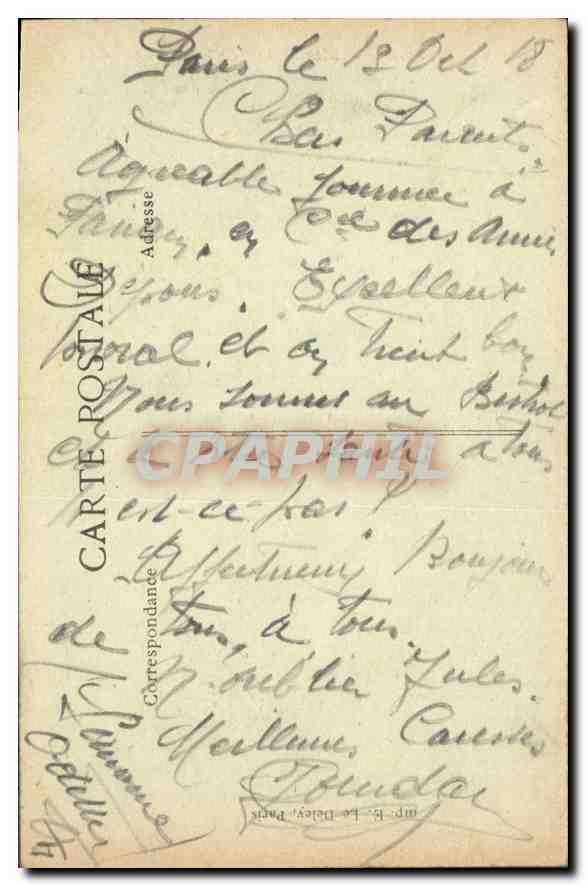 Paris le 13 Oct 18
Chers Parents
Agréable journée à
Paris, en Cie des Amis
Dejous. Excellent
moral et on tient bon
Nous sommes au Bistrot
et à votre santé à tous
n'est-ce-pas !
Affectueux Bonjour
de tous, à tous.
N'oublier Jules.
Meilleures Caresses
CARTE POSTALE
Adresse
Correspondance
Imp. E. Le Deley, Paris
CPAPHIL